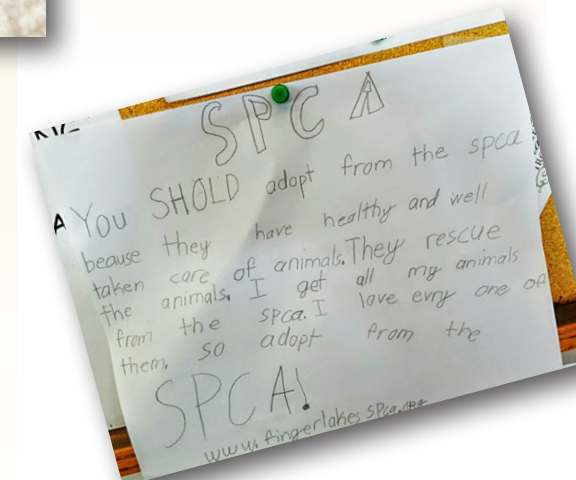 SPCA
YOU SHOLD adopt from the spca
beause they have healthy and well
taken care of animals. They rescue
the animals. I get all my animals
from the spca. I love evry one of
them. so adopt from the
SPCA!
www.fingerlakesspca.org